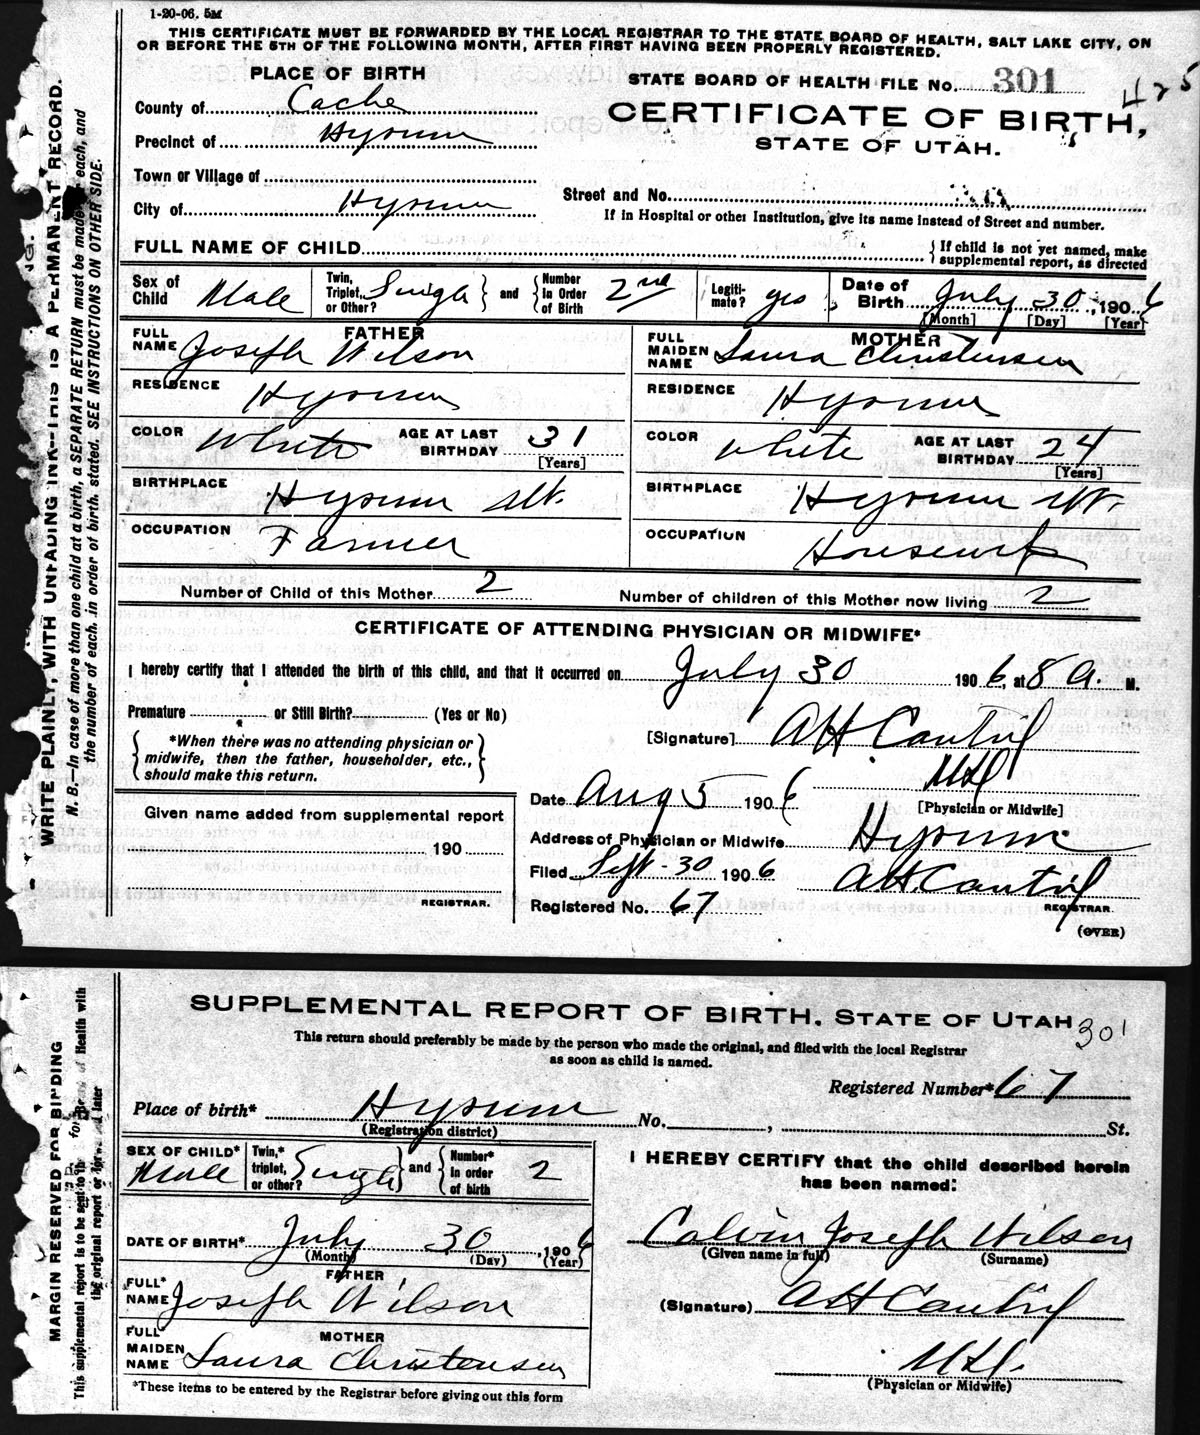 1-20-06. 5M
THIS CERTIFICATE MUST BE FORWARDED BY THE LOCAL REGISTRAR TO THE STATE BOARD OF HEALTH, SALT LAKE CITY, ON
OR BEFORE THE 5TH OF THE FOLLOWING MONTH, AFTER FIRST HAVING BEEN PROPERLY REGISTERED.
PLACE OF BIRTH
STATE BOARD OF HEALTH FILE No. 301
425
County of Cache
CERTIFICATE OF BIRTH,
Precinct of Hyrum
STATE OF UTAH.
Town or Village of
Street and No.
City of Hyrum
If in Hospital or other Institution, give its name instead of Street and number.
FULL NAME OF CHILD
If child is not yet named, make
supplemental report, as directed
Sex of Child Male
Twin, Triplet, or Other? Single and Number In Order of Birth 2nd
Legiti-mate? yes
Date of Birth July 30, 1906
[Month] [Day] [Year]
FATHER
FULL NAME Joseph Wilson
MOTHER
FULL MAIDEN NAME Laura Christensen
RESIDENCE Hyrum
RESIDENCE Hyrum
COLOR White AGE AT LAST BIRTHDAY 31
[Years]
COLOR White AGE AT LAST BIRTHDAY 24
[Years]
BIRTHPLACE Hyrum Ut.
BIRTHPLACE Hyrum Ut.
OCCUPATION Farmer
OCCUPATION Housewife
Number of Child of this Mother 2
Number of children of this Mother now living 2
CERTIFICATE OF ATTENDING PHYSICIAN OR MIDWIFE*
I hereby certify that I attended the birth of this child, and that it occurred on July 30 1906, at 8 A. M.
Premature or Still Birth? (Yes or No)
[Signature] A H Cantril
MD
[Physician or Midwife]
*When there was no attending physician or
midwife, then the father, householder, etc.,
should make this return.
Date Aug 5 1906
Given name added from supplemental report
190
REGISTRAR.
Address of Physician or Midwife Hyrum
Filed Sept - 30 1906 A H. Cantril
REGISTRAR.
Registered No. 67
(OVER)
WRITE PLAINLY, WITH UNFADING INK—THIS IS A PERMANENT RECORD.
N. B.—In case of more than one child at a birth, a SEPARATE RETURN must be made each, and
the number of each, in order of birth, stated. SEE INSTRUCTIONS ON OTHER SIDE.
SUPPLEMENTAL REPORT OF BIRTH. STATE OF UTAH
301
This return should preferably be made by the person who made the original, and filed with the local Registrar
as soon as child is named.
Registered Number* 67
Place of birth* Hyrum No. , St.
(Registration district)
SEX OF CHILD* Male
Twin,* triplet, or other? Single and Number* in order of birth 2
I HEREBY CERTIFY that the child described herein
has been named:
DATE OF BIRTH* July 30, 1906
(Month) (Day) (Year)
Calvin Joseph Wilson
(Given name in full) (Surname)
FATHER
FULL* NAME Joseph Wilson
(Signature) A H Cantril
MOTHER
FULL MAIDEN NAME Laura Christensen
MD.
(Physician or Midwife)
*These items to be entered by the Registrar before giving out this form
MARGIN RESERVED FOR BINDING
This supplemental report is to be sent to the of Health with
the original report or later